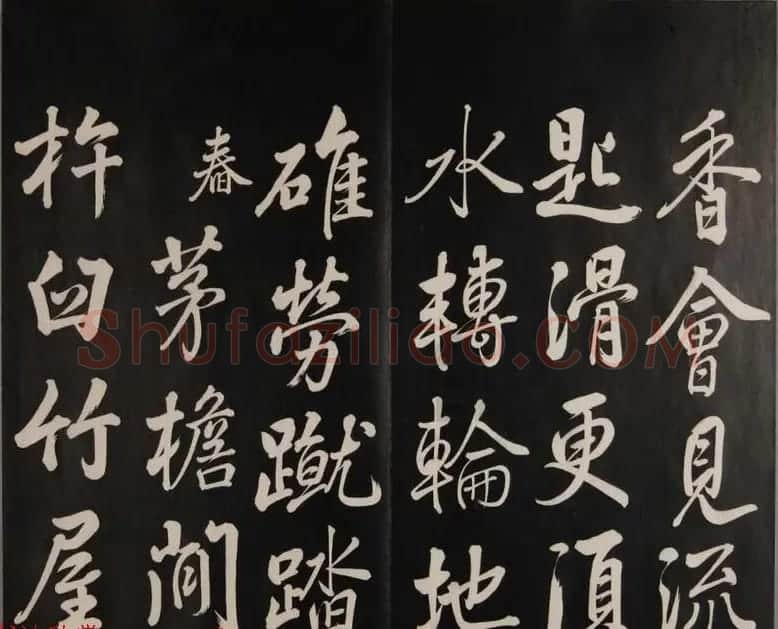 香會見流
匙滑更須
水轉輪地
碓勞蹴踏
舂
茅檐間
杵臼竹屋
Shufaziliao.COM